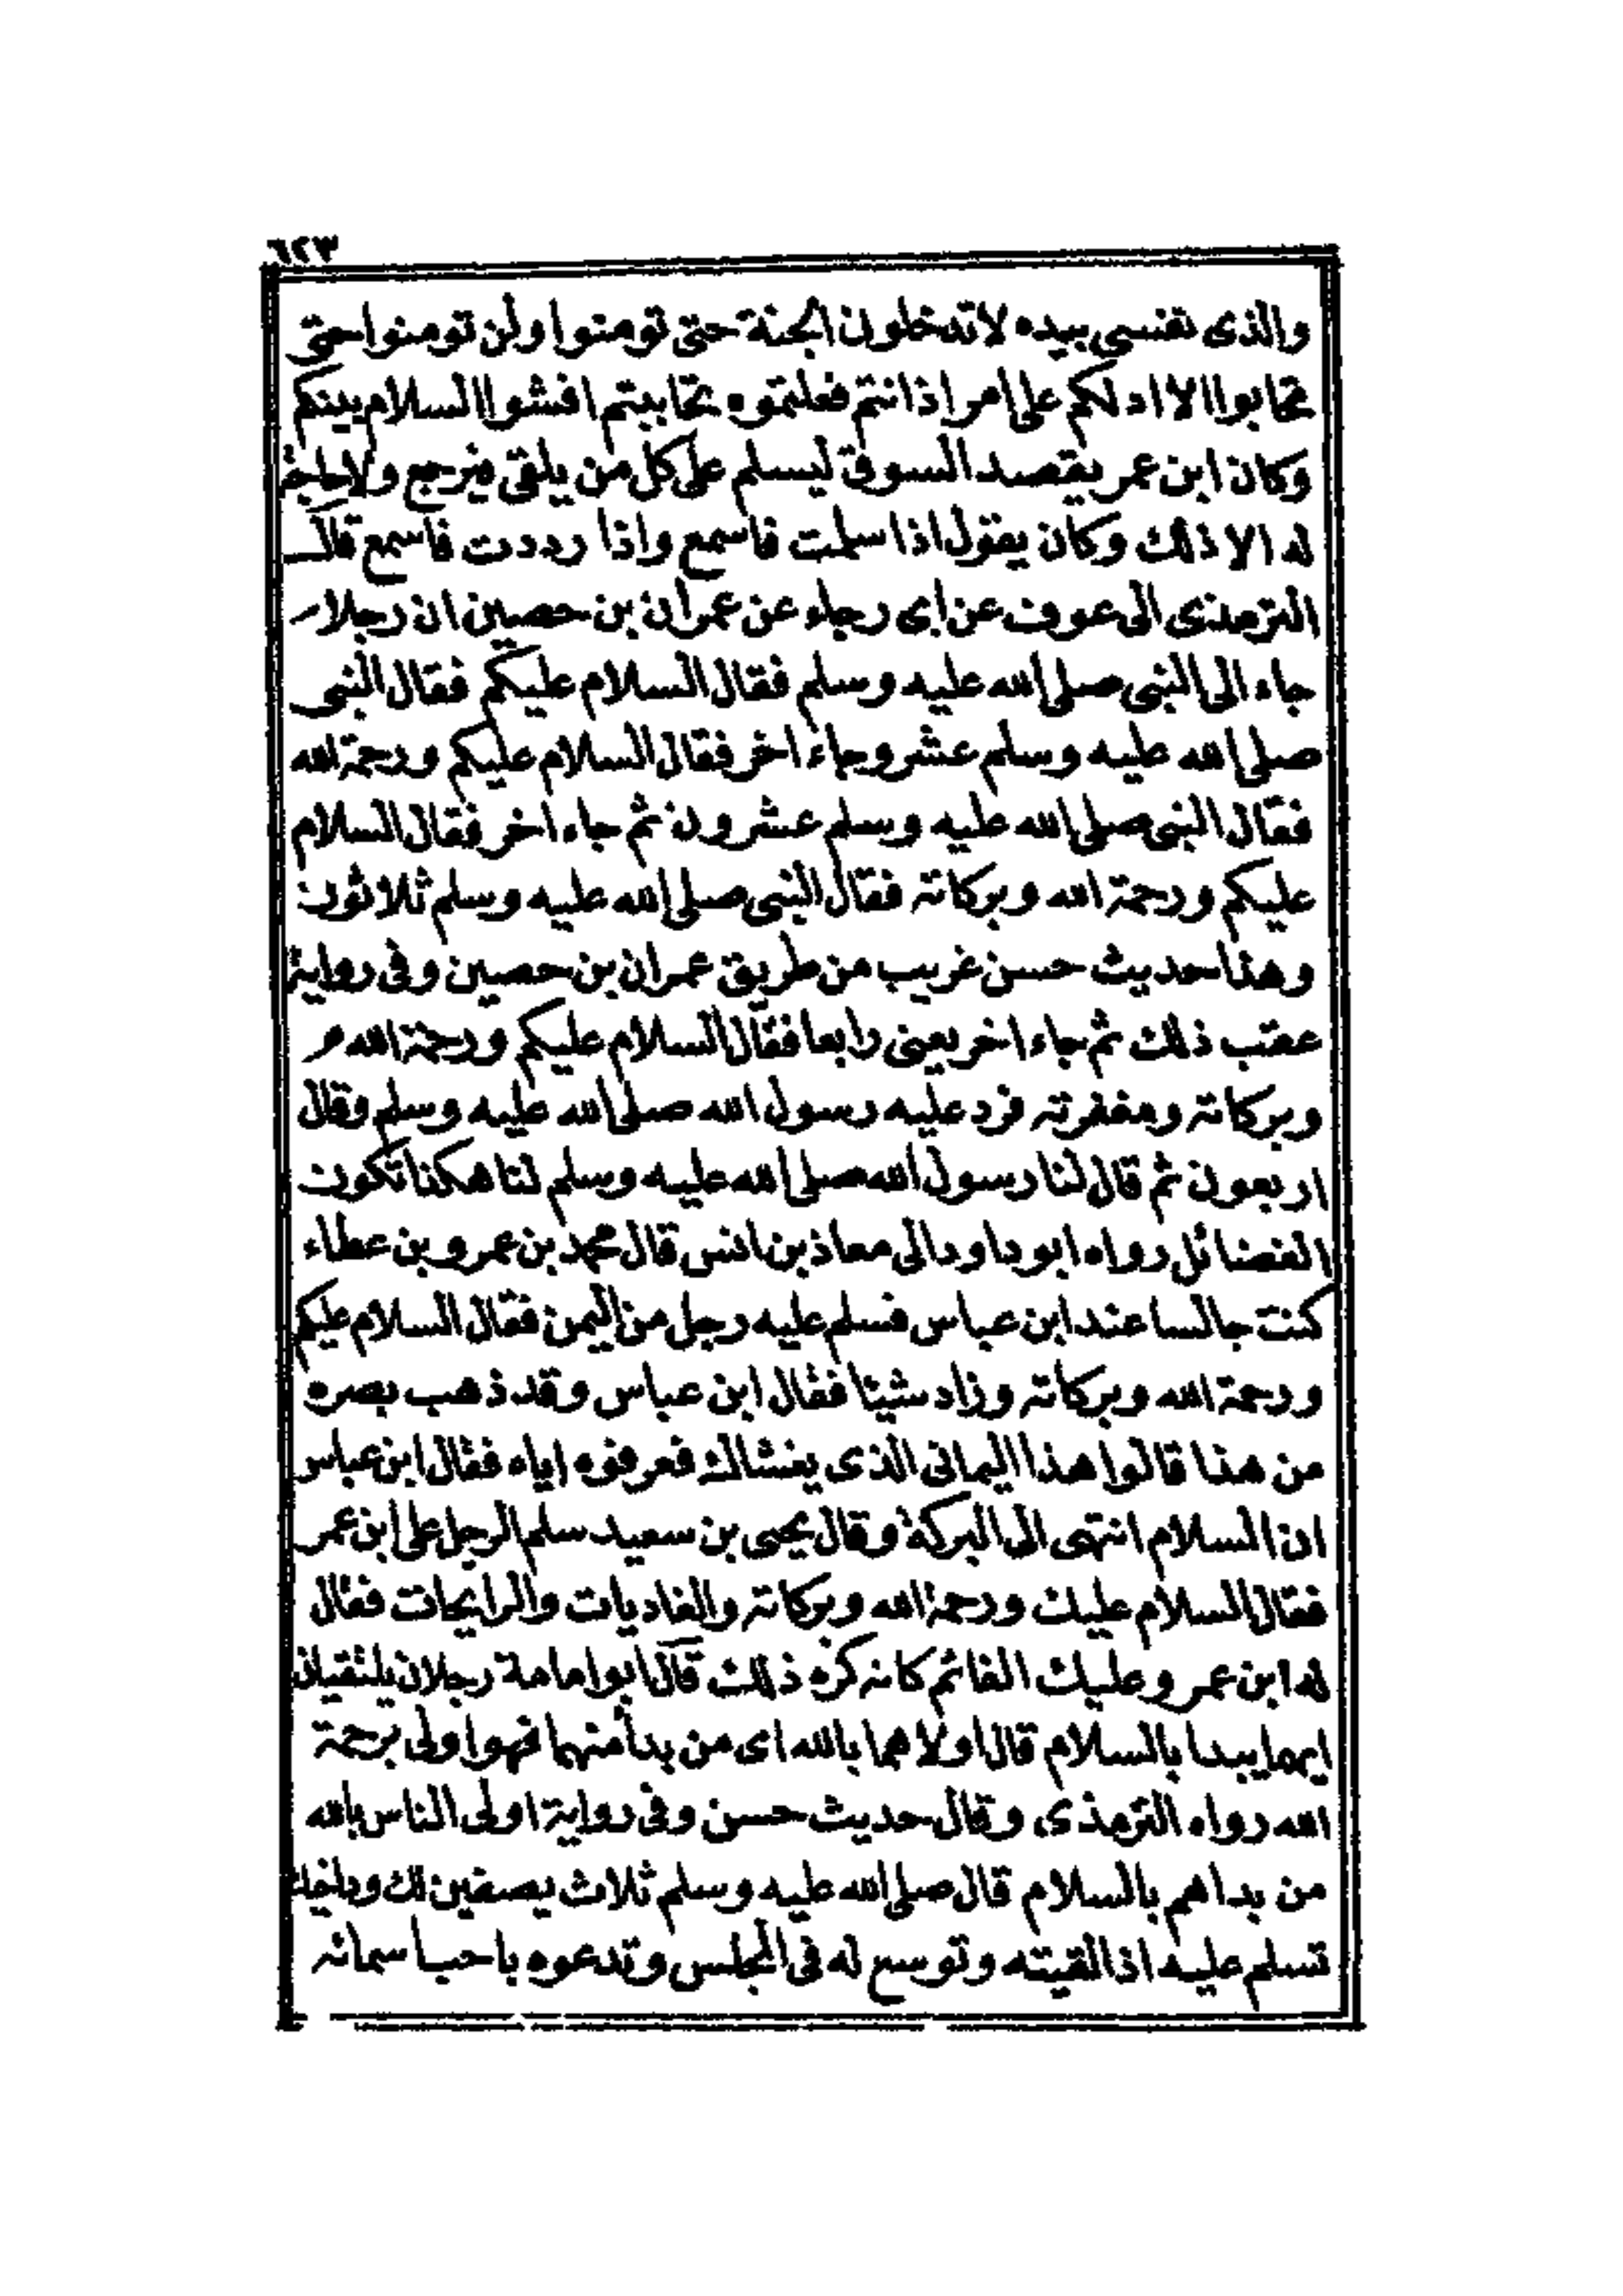 ٦٢٣
والذى نفسى بيده لا تدخلون الجنة حتى تومنوا ولن تومنوا حتى
تحابوا الا ادلكم على امر اذا انتم فعلتموه تحاببتم افشوا السلام بينكم
وكان ابن عمر يقصد السوق ليسلم على كل من يلقى فيرجع ولا حاجة
له الا ذلك وكان يقول اذا سلمت فاسمع واذا رددت فاسمع قال
الترمذى الى عوف عن ابى رجاء عن عمران بن حصين ان رجلا
جاء الى النبى صلى الله عليه وسلم فقال السلام عليكم فقال النبى
صلى الله عليه وسلم عشر وجاء اخر فقال السلام عليكم ورحمة الله
فقال النبى صلى الله عليه وسلم عشرون ثم جاء اخر فقال السلام
عليكم ورحمة الله وبركاته فقال النبى صلى الله عليه وسلم ثلاثون
وهذا حديث حسن غريب من طريق عمران بن حصين وفى رواية
عقب ذلك ثم جاء اخر يعنى رابعا فقال السلام عليكم ورحمة الله
وبركاته ومغفرته فرد عليه رسول الله صلى الله عليه وسلم وقال
اربعون ثم قال لنا رسول الله صلى الله عليه وسلم لنا هكذا تكون
الفضائل رواه ابو داود الى معاذ بن انس قال محمد بن عمرو بن عطاء
كنت جالسا عند ابن عباس فسلم عليه رجل من اليمن فقال السلام عليكم
ورحمة الله وبركاته وزاد شيئا فقال ابن عباس وقد ذهب بصره
من هذا قالوا هذا اليمانى الذى يغشاك فعرفوه اياه فقال ابن عباس
ان السلام انتهى الى البركة وقال يحيى بن سعيد سلم الرجل على ابن عمر
فقال السلام عليك ورحمة الله وبركاته والغاديات والرايحات فقال
له ابن عمر وعليك الفائم كانه كره ذلك قال ابو امامة رجلان يلتقيان
ايهما يبدا بالسلام قال اولاهما بالله اى من بدأ منهما فهو اولى برحمة
الله رواه الترمذى وقال حديث حسن وفى رواية اولى الناس بالله
من بداهم بالسلام قال صلى الله عليه وسلم ثلاث يصفين لك ود اخيك
تسلم عليه اذا لقيته وتوسع له فى المجلس وتدعوه باحب اسمائه